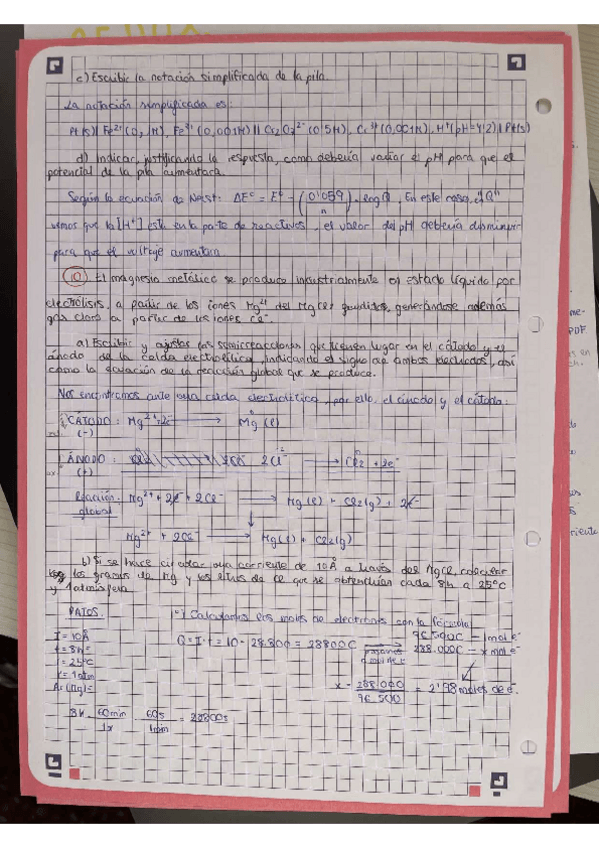 c) Escribir la notación simplificada de la pila.
La notación simplificada es:
Pt(s)| Fe²⁺(0, M), Fe³⁺(0,001M) || Cr₂O₇²⁻(0'5M), Cr³⁺(0,001M), H⁺(pH=4'2) | Pt(s)
d) Indicar, justificando la respuesta, como debería variar el pH para que el
potencial de la pila aumentara.
Según la ecuación de Nerst: ΔE^c = E° - (0'059/n) · log Q, En este caso, el "Q"
vemos que la [H⁺] está en la parte de reactivos, el valor del pH debería disminuir
para que el voltaje aumentara.
10 El magnesio metálico se produce industrialmente en estado líquido por
electrólisis, a partir de los iones Mg²⁺ del MgCl₂ fundido, generándose además
gas cloro a partir de los iones Cl⁻
a) Escribir y ajustar las semirreacciones que tienen lugar en el cátodo y el
ánodo de la celda electrolítica, indicando el signo de ambos electrodos, así
como la ecuación de la reacción global que se produce.
Nos encontramos ante una celda electrolítica, por ello, el ánodo y el cátodo:
CÁTODO: Mg²⁺ + 2e⁻ → Mg (l)
(-)
ÁNODO: 2Cl⁻ → Cl₂ + 2e⁻
(+)
Reacción: Mg²⁺ + 2e⁻ + 2Cl⁻ → Mg(l) + Cl₂(g) + 2e⁻
global
Mg²⁺ + 2Cl⁻ → Mg(l) + Cl₂(g)
b) Si se hace circular una corriente de 10A a través del MgCl₂ calcular
los gramos de Mg y los litros de Cl que se obtendrían cada 8h a 25°C
y 1 atmósfera.
DATOS:
1º) Calculamos los moles de electrones con la fórmula:
I = 10A
t = 8h
T = 25°C
1atm
Ar(Mg)=
Q = I · t = 10 · 28.800 = 288000 C
96.500C = 1mol e⁻
288.000C = x mol e⁻
x = 288.000/96.500 = 2'98 moles de e⁻
8h · 60min/1h · 60s/1min = 28800s